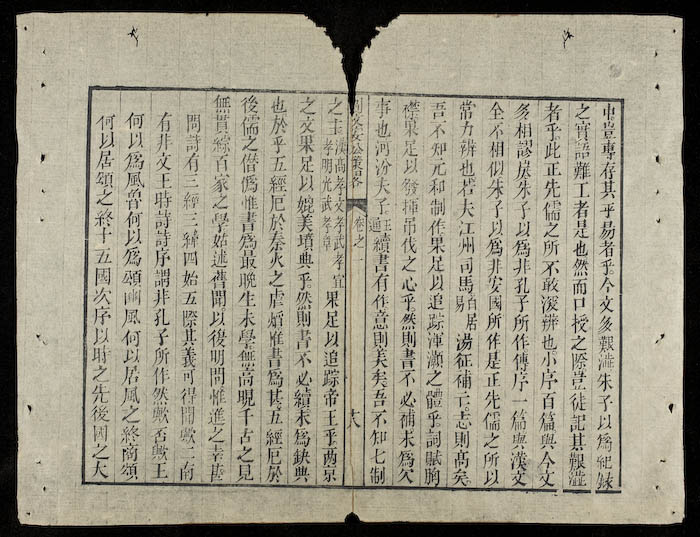 中豈專存其乎易者乎今文多艱澁朱子以爲紀録
之實語難工者是也然而口授之際豈徒記其艱澁
者乎此正先儒之所不敢深辨也小序百篇與今文
多相謬戾朱子以爲非孔子所作傳序一篇與漢文
全不相似朱子以爲非安國所作是正先儒之所以
常力辨也若夫江州司馬白居易湯征補亡志則髙矣
吾不知元和制作果足以追踪渾灝之體乎詞賦胷
襟果足以發揮吊伐之心乎然則書不必補未爲欠
事也河汾夫子王通續書有作意則美矣吾不知七制
文公策畧 卷之一 十八
之主漢髙孝文孝武孝宣孝明光武孝章果足以追踪帝王乎两京
之文果足以媲美墳典乎然則書不必續未爲缺典
也於乎五經厄於秦火之虐焰惟書爲甚五經厄於
後儒之僭僞惟書爲最晩生末學無髙覌千古之見
無貫綜百家之學姑述舊聞以復明問惟進之幸甚
問詩有三經三緯四始五際其義可得聞歟二南
有非文王時詩詩序謂非孔子所作然歟否歟王
何以爲風魯何以爲頌豳風何以居風之終商頌
何以居頌之終十五國次序以時之先後國之大